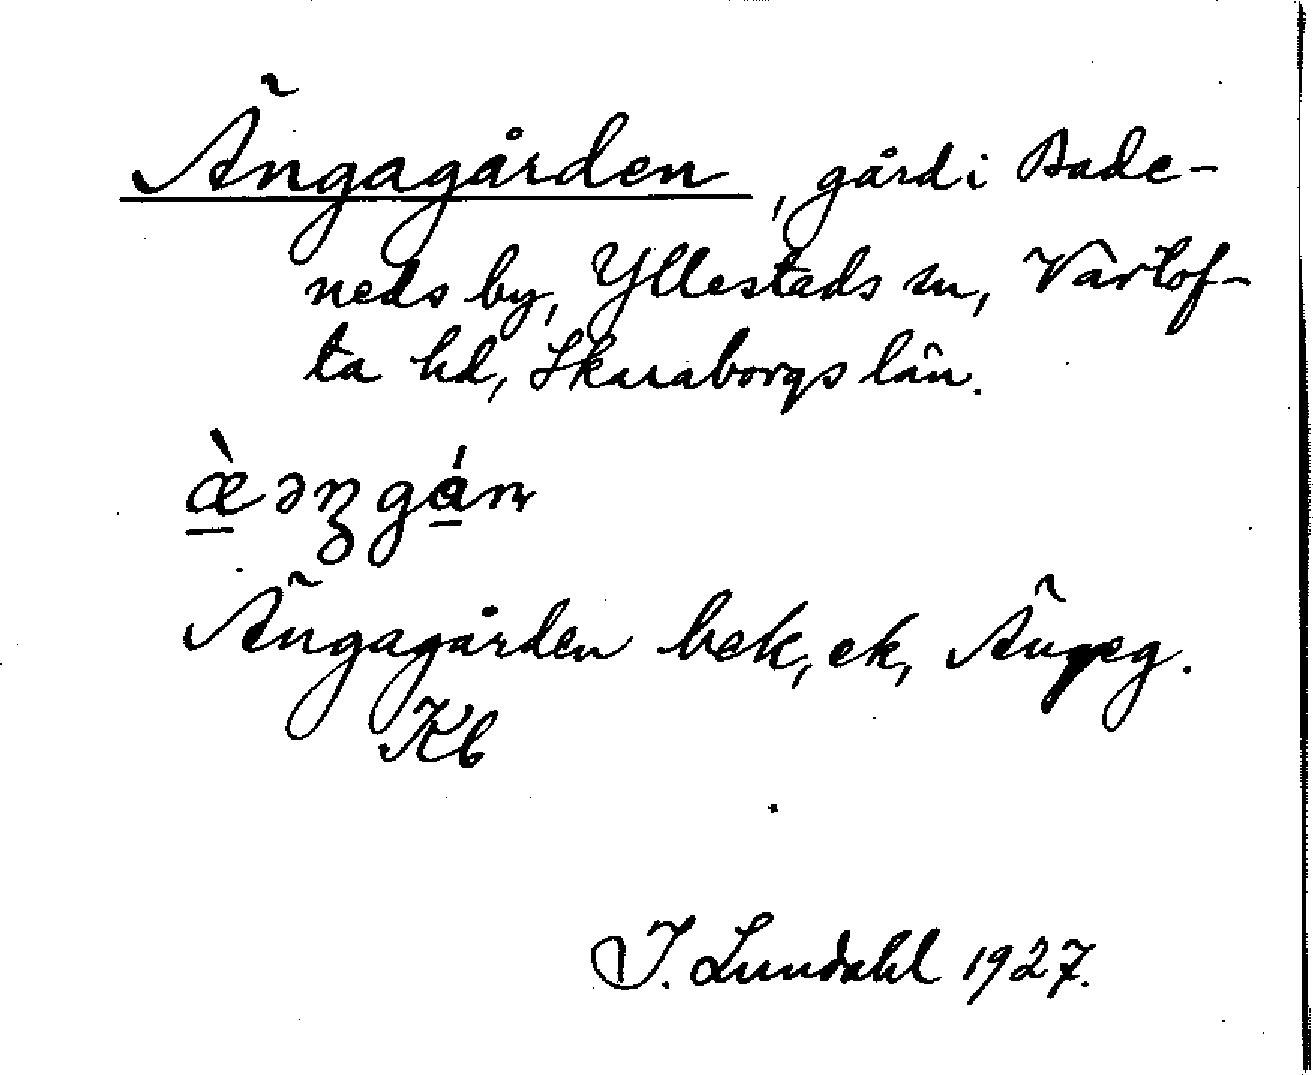 Ängagården, gård i Bade-
neds by, Yllestads sn, Vartof-
ta hd, Skaraborgs län.
æ̠̀əŋgá̠ɳ
Ängagården bek, ek, Ängeg.
Kb
I. Lundahl 1927.